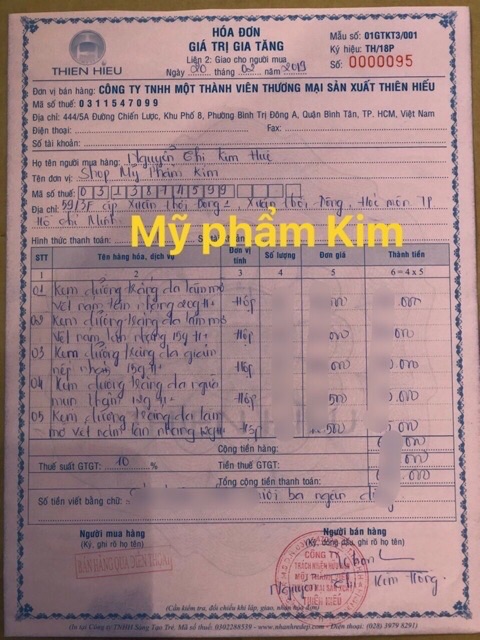 THIÊN HIẾU
HÓA ĐƠN
GIÁ TRỊ GIA TĂNG
Liên 2: Giao cho người mua
Ngày 20 tháng 02 năm 2019
Mẫu số: 01GTKT3/001
Ký hiệu: TH/18P
Số: 0000095
Đơn vị bán hàng: CÔNG TY TNHH MỘT THÀNH VIÊN THƯƠNG MẠI SẢN XUẤT THIÊN HIẾU
Mã số thuế: 0311547099
Địa chỉ: 444/5A Đường Chiến Lược, Khu Phố 8, Phường Bình Trị Đông A, Quận Bình Tân, TP. HCM, Việt Nam
Điện thoại: Fax:
Số tài khoản:
Họ tên người mua hàng: Nguyễn Thị Kim Huê
Tên đơn vị: Shop Mỹ Phẩm Kim
Mã số thuế:
Địa chỉ: 59/5F ấp Xuân Thới Đông 2, Xuân Thới Đông, Hóc môn, TP
Hồ Chí Minh
Mỹ phẩm Kim
Hình thức thanh toán:
STT Tên hàng hóa, dịch vụ Đơn vị tính Số lượng Đơn giá Thành tiền
1 2 3 4 5 6 = 4 x 5
01 Kem dưỡng trắng da làm mờ
vết nám tàn nhang 20g H+ Hộp 000 .000
02 Kem dưỡng trắng da làm mờ
vết nám tàn nhang 15g H+ Hộp 000 .000
03 Kem dưỡng trắng da giảm
nếp nhăn 15g H+ Hộp 000 .000
04 Kem dưỡng trắng da ngừa
mụn thâm H+ Hộp 500 .000
05 Kem dưỡng trắng da làm
mờ vết nám tàn nhang Hộp 500 .000
Cộng tiền hàng: 000
Thuế suất GTGT: 10 % Tiền thuế GTGT: 000
Tổng cộng tiền thanh toán: 000
Số tiền viết bằng chữ: ba ngàn
Người mua hàng
(Ký, ghi rõ họ tên)
BÁN HÀNG QUA ĐIỆN THOẠI
Người bán hàng
(Ký, đóng dấu, ghi rõ họ tên)
CÔNG TY
TRÁCH NHIỆM HỮU HẠN
MỘT THÀNH VIÊN
THIÊN HIẾU
Nguyễn Thị Kim Hồng
(Cần kiểm tra, đối chiếu khi lập, giao, nhận hóa đơn)